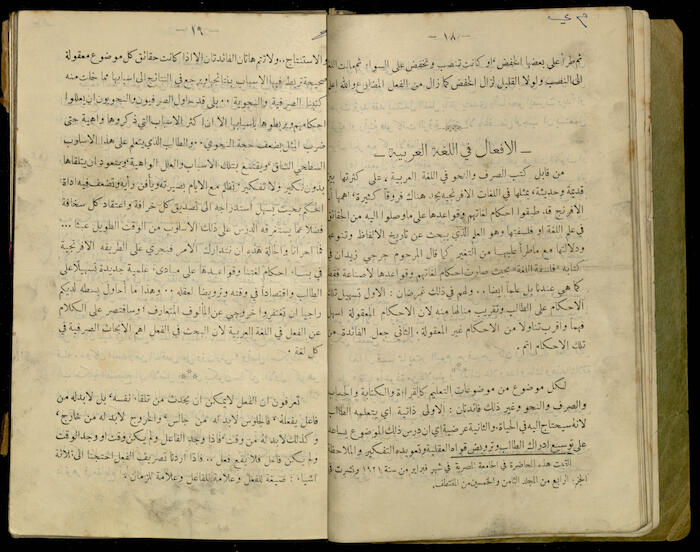 م ي
— ١٨ —
ثم طرأ على بعضها الخفض او كانت تنصب وتخفض على السواء ثم مالت الى
الى النصب ولولا القليل لزال الخفض كما زال من الفعل المضارع والله اعلم
— الافعال في اللغة العربية —
من قابل كتب الصرف والنحو في اللغة العربية، على كثرتها بين
قديمة وحديثة، بمثلها في اللغات الافرنجية يجد هناك فروقاً كثيرة، اهمها ان
الافرنج قد طبقوا احكام لغاتهم وقواعدها على ما وصلوا اليه من الحقائق
في علم اللغة او فلسفتها وهو العلم الذي يبحث عن تاريخ الالفاظ وتنوعها
ودلالتها مع ما طرأ عليها من التغير كما قال المرحوم جرجي زيدان في
كتابه «فلسفة اللغة» بحيث صارت احكام لغاتهم وقواعدها لا صناعة فقط
كما هي عندنا بل علماً ايضاً .. ولهم في ذلك غرضان : الاول تسهيل تلك
الاحكام على الطالب وتقريب منالها منه لان الاحكام المعقولة اسهل
فهماً واقرب تناولا من الاحكام غير المعقولة. الثاني جعل الفائدة من
تلك الاحكام اتم .
لكل موضوع من موضوعات التعليم كالقراءة والكتابة والحساب
والصرف والنحو وغير ذلك فائدتان : الاولى ذاتية اي يتعلمه الطالب
لانه سيحتاج اليه في الحياة. والثانية عرضية اي ان درس ذلك الموضوع يساعد
على توسيع ادراك الطالب وترويض قواه العقلية وتعويده التفكير والملاحظة
القيت هذه المحاضرة في الجامعة المصرية في شهر فبراير من سنة ١٩٢١ ونشرت في
الجزء الرابع من المجلد الثامن والخمسين من المقتطف.
— ١٩ —
والاستنتاج.. ولا تتم هاتان الفائدتان الا اذا كانت حقائق كل موضوع معقولة
صحيحة تربط فيها الاسباب بنتائجها ويرجع في النتائج الى اسبابها مما خلت منه
كتبنا الصرفية والنحوية .. بلى قد حاول الصرفيون والنحويون ان يعللوا
احكامهم ويربطوها باسبابها الا ان اكثر الاسباب التي ذكروها واهية حتى
ضرب المثل بضعف حجة النحوي .. والطالب الذي يتعلم على هذا الاسلوب
السطحي الشاق ويقتنع بتلك الاسباب والعلل الواهية ويتعود ان يتلقاها
بدون نكير ولا تفكير تطمس مع الايام بصيرته ويأفن رأيه وتضعف فيه اداة
الحكم بحيث يسهل استدراجه الى تصديق كل خرافة واعتقاد كل سخافة
فضلاً عما يستغرقه الدرس على ذلك الاسلوب من الوقت الطويل عبثاً ...
فما احرانا والحالة هذه ان نتدارك الامر فنجري على الطريقة الافرنجية
في بناء احكام لغتنا وقواعدها على مبادىء علمية جديدة تسهيلاً على
الطالب واقتصاداً في وقته وترويضاً لعقله .. وهذا ما احاول بسطه لديكم
راجياً ان تغتفروا خروجي عن المألوف المتعارف وسأقتصر على الكلام
عن الفعل في اللغة العربية لان البحث في الفعل اهم الابحاث الصرفية في
كل لغة .
تعرفون ان الفعل لا يمكن ان يحدث من تلقاء نفسه، بل لا بد له من
فاعل يفعله، فالجلوس لا بد له من جالس، والخروج لا بد له من خارج،
وكذلك لا بد له من وقت، فاذا وجد الفاعل ولم يكن وقت او وجد الوقت
ولم يكن فاعل فلا يقع فعل .. فاذا اردنا تصريف الفعل احتجنا الى ثلاثة
اشياء : صيغة للفعل وعلامة للفاعل وعلامة للزمان .